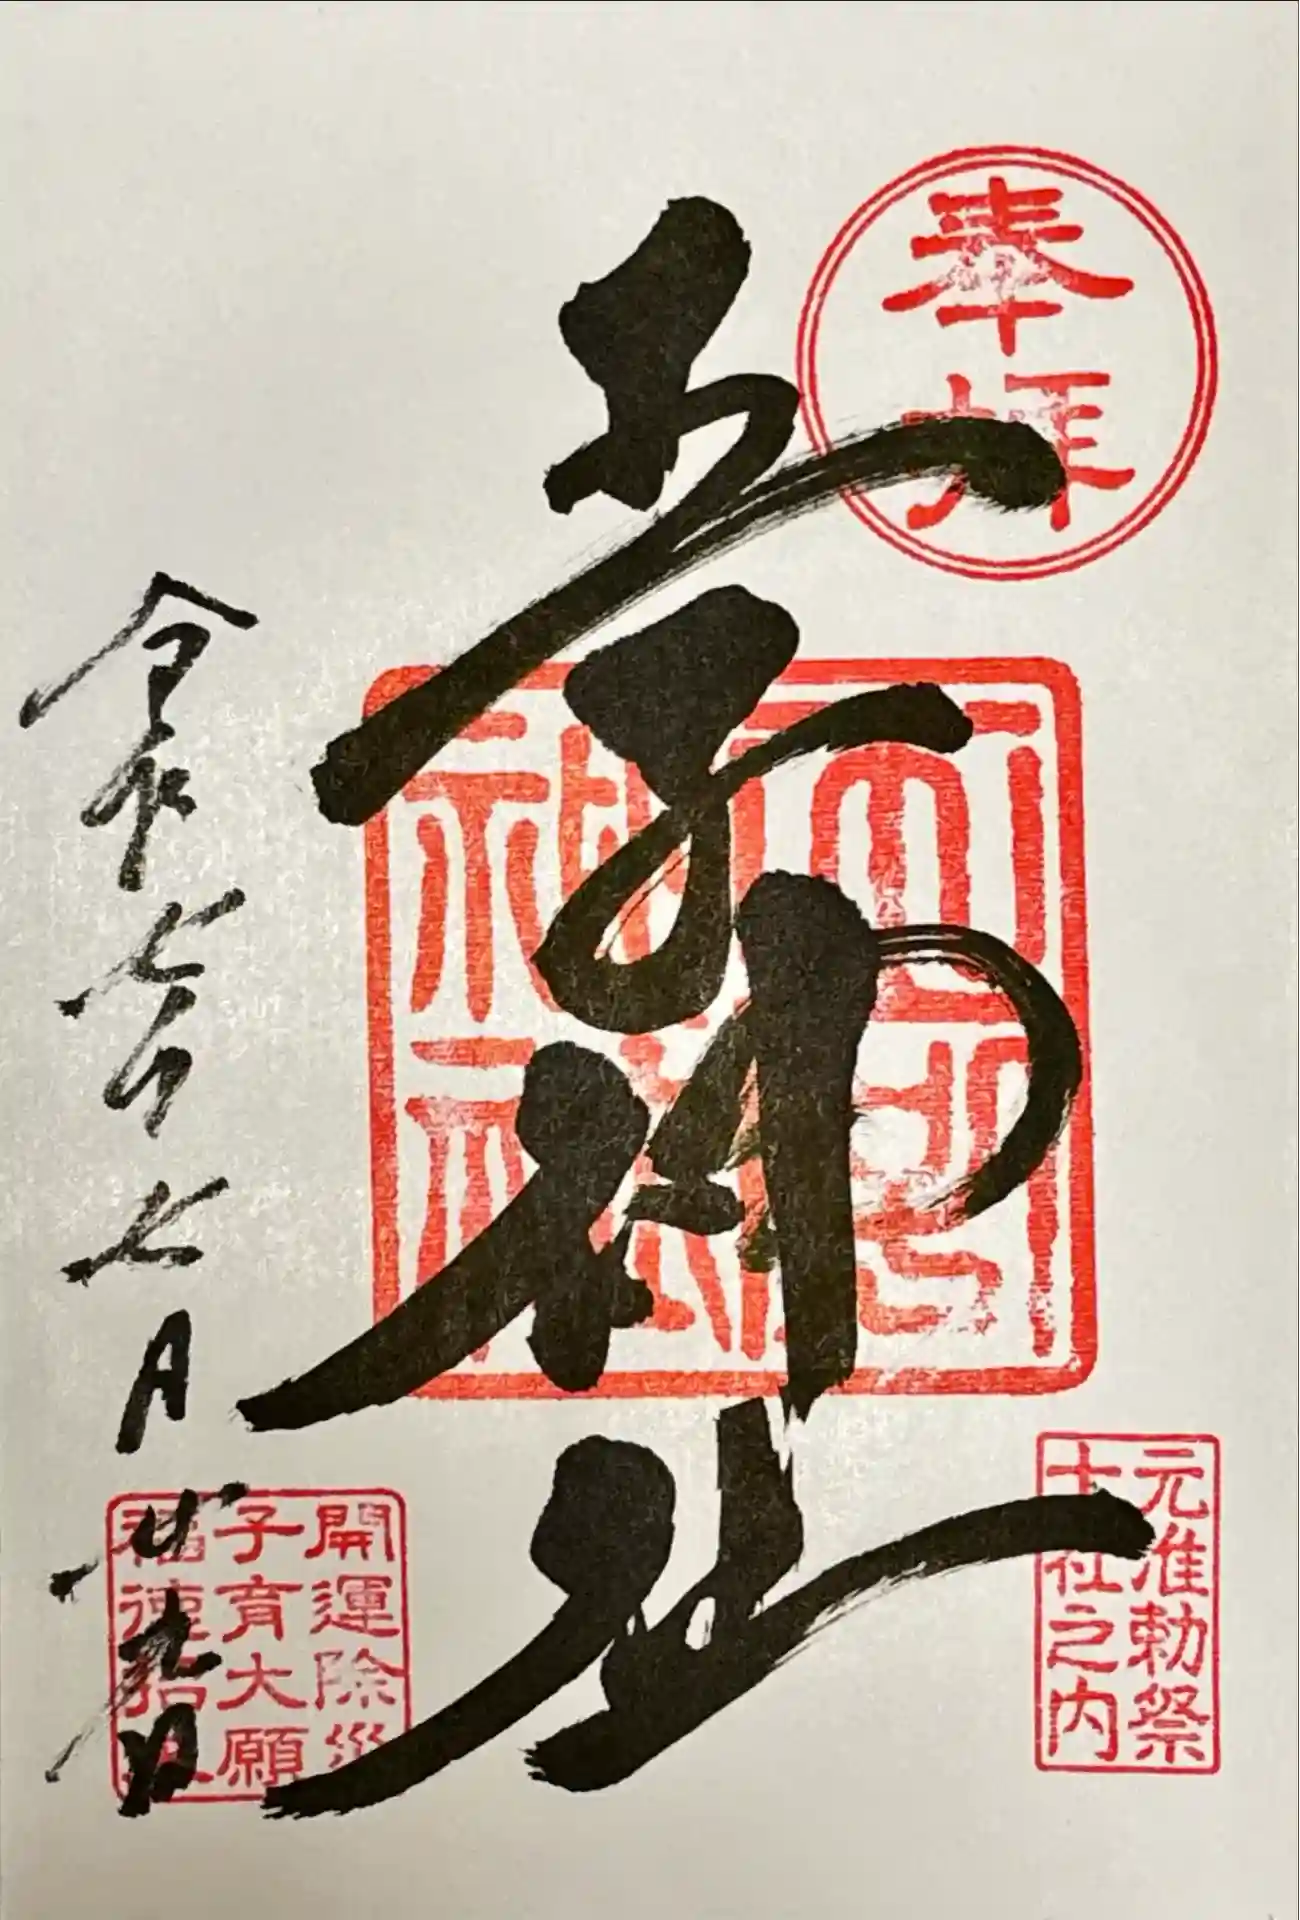 奉拝
元准勅祭
十社之内
王子神社
開運除災
子育大願
福徳招来
令和七年七月廿九日